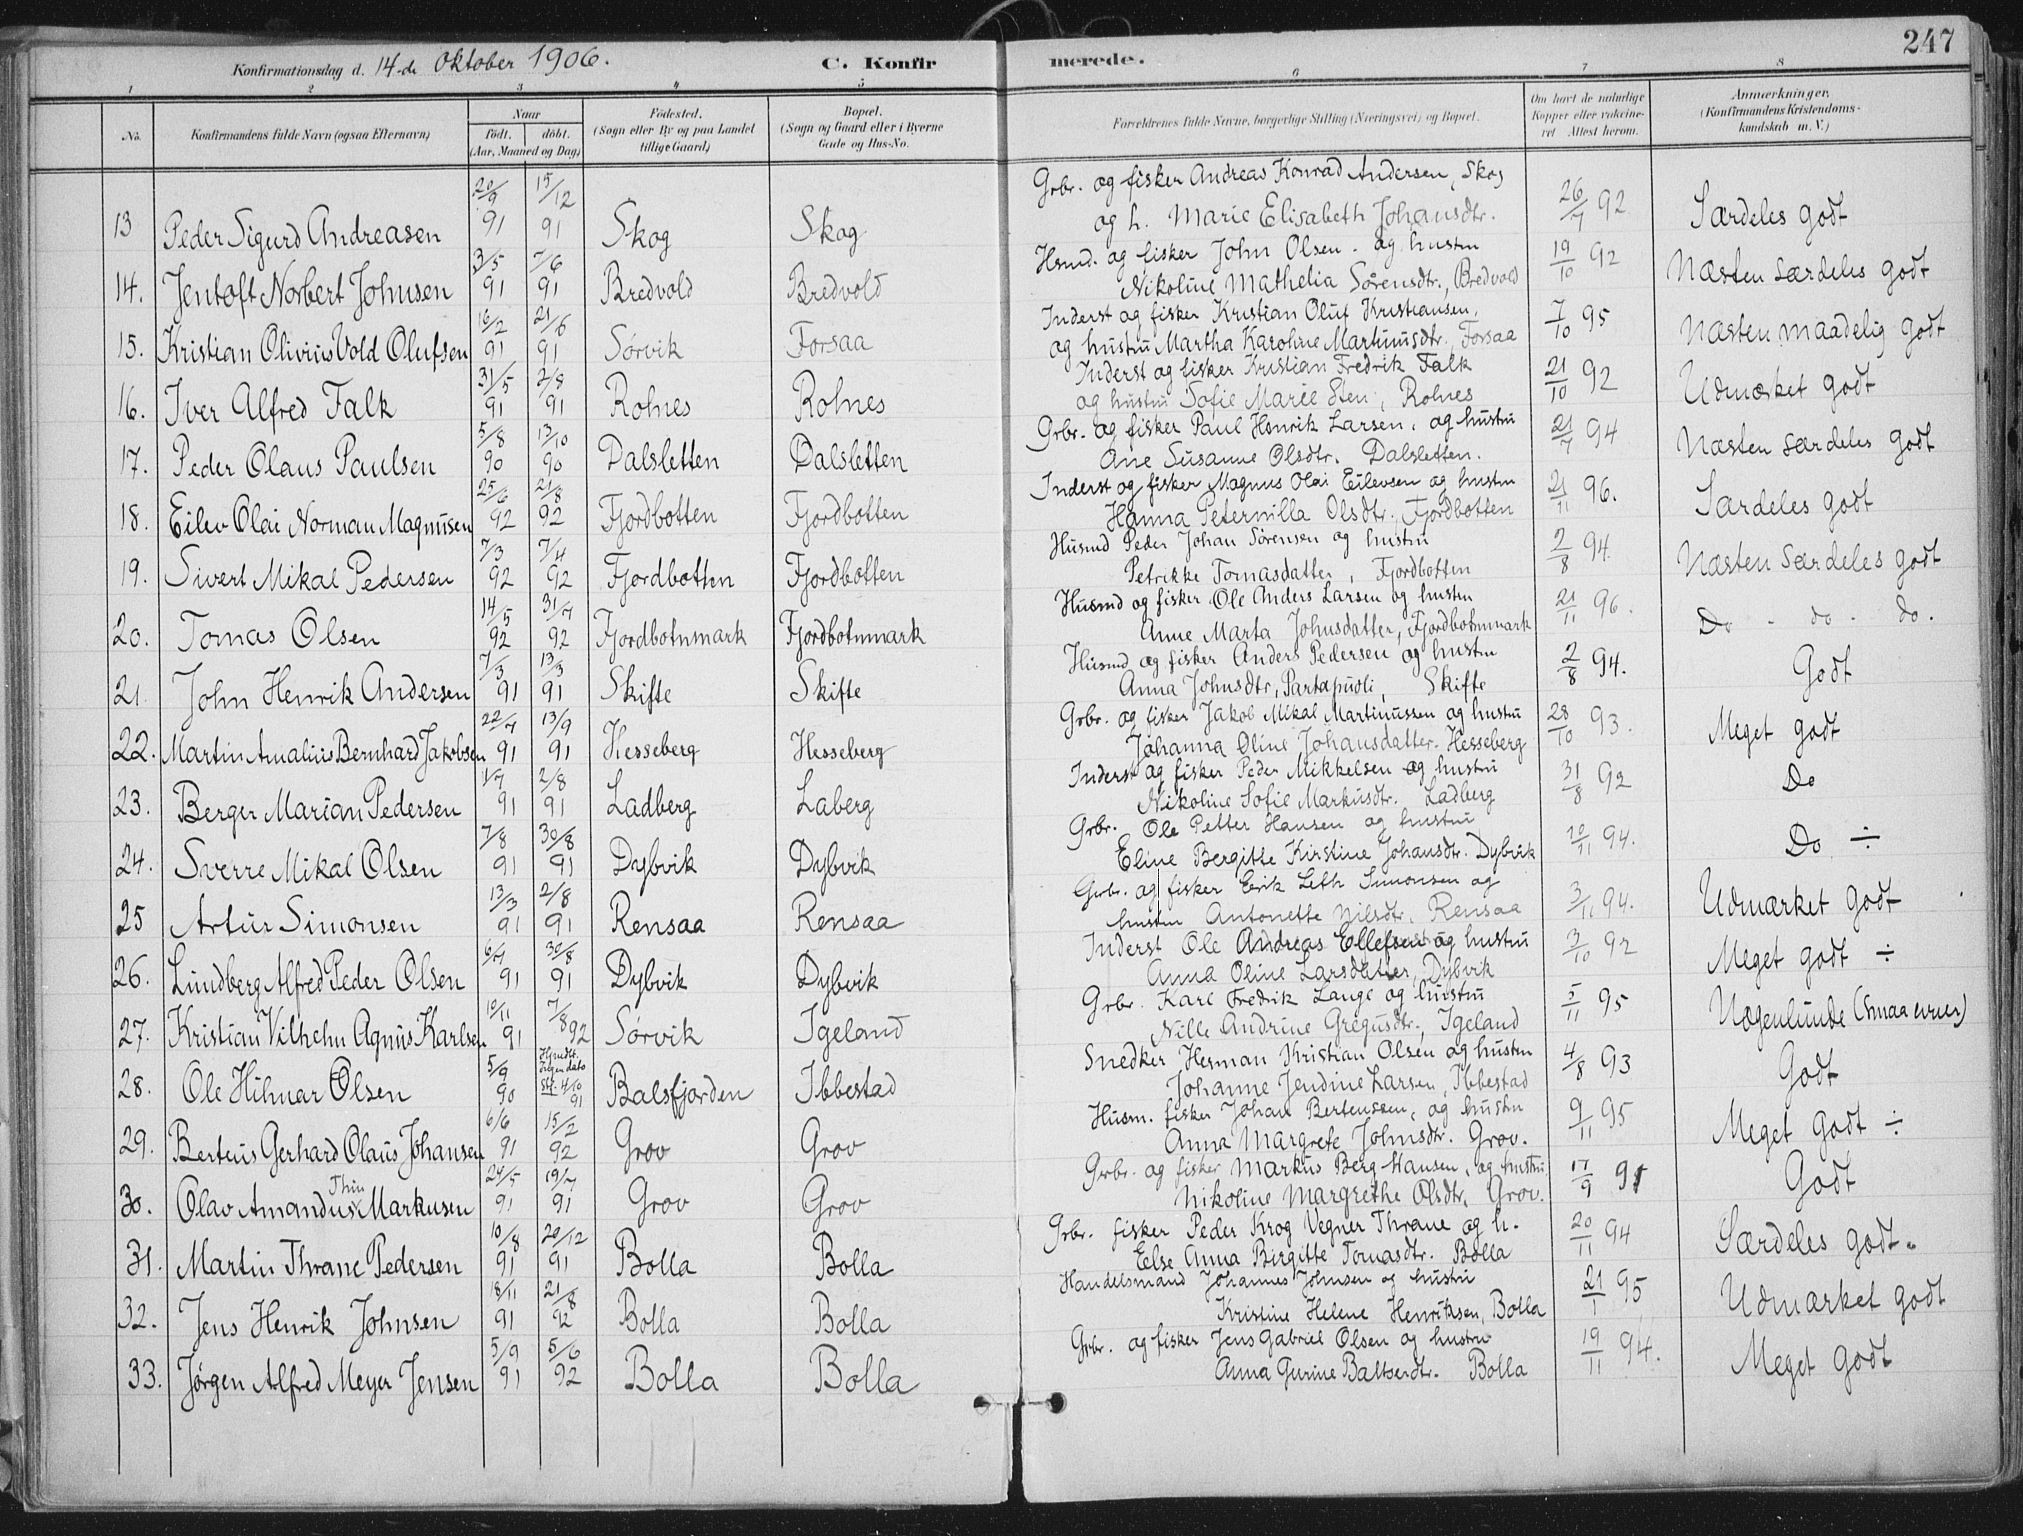 247
Konfirmationsdag d. 14-de Oktober 1906. C. Konfirmerede.
1 2 3 4 5 6 7 8
No. Konfirmandens fulde Navn (ogsaa Efternavn) Naar født. døbt. (Aar, Maaned og Dag) Fødested. (Sogn eller By og paa Landet tillige Gaard) Bopæl. (Sogn og Gaard eller i Byerne Gade og Hus-No. Forældrenes fulde Navne, borgerlige Stilling (Næringsvei) og Bopæl. Om havt de naturlige Kopper eller vakcineret Attest herom. Anmærkninger. (Konfirmandens Kristendomskundskab m. V.)
13 Peder Sigurd Andreasen 20/9 91 15/12 91 Skog Skog Grbr. og fisker Andreas Konrad Andersen, Skog 26/7 92 Særdeles godt
og h. Marie Elisabeth Johansdtr.
14. Jentoft Norbert Johnsen 3/5 91 7/6 91 Bredvold Bredvold Hsmd. og fisker John Olsen og hustru 19/10 92 Næsten særdeles godt
Nikoline Mathelia Sørensdtr., Bredvold
15. Kristian Olivius Vold Olufsen 16/2 91 21/6 91 Sørvik Forsaa Inderst og fisker Kristian Oluf Kristiansen, 7/10 95 Næsten maadelig godt
og hustru Martha Karoline Martinusdtr., Forsaa
16. Iver Alfred Falk 31/5 91 2/8 91 Rolnes Rolnes Inderst og fisker Kristian Fredrik Falk 21/10 92 Udmærket godt
og hustru Sofie Marie Sten, Rolnes
17. Peder Olaus Paulsen 5/8 90 13/10 90 Dalsletten Dalsletten Grbr. og fisker Paul Henrik Larsen, og hustru 21/7 94 Næsten særdeles godt
Ane Susanne Olsdtr. Dalsletten.
18. Eilev Olai Norman Magnusen 25/6 92 21/8 92 Fjordbotten Fjordbotten Inderst og fisker Magnus Olai Eilevsen og hustru 21/11 96. Særdeles godt
Hanna Peternilla Olsdtr., Fjordbotten
19. Sivert Mikal Pedersen 7/3 92 7/4 92 Fjordbotten Fjordbotten Husmd Peder Johan Sørensen og hustru 2/8 94. Næsten særdeles godt
Petrikke Tomasdatter, Fjordbotten
20. Tomas Olsen 14/5 92 31/7 92 Fjordbotnmark Fjordbotnmark Husmd og fisker Ole Anders Larsen og hustru 21/11 96. Do - do - do.
Anne Marta Johnsdatter, Fjordbotnmark
21. John Henrik Andersen 7/3 91 13/3 91 Skifte Skifte Husmd og fisker Anders Pedersen og hustru 2/8 94. Godt
Anna Johnsdtr, Partapuoli, Skifte
22. Martin Amalius Bernhard Jakobsen 22/7 91 13/9 91 Hesseberg Hesseberg Grbr. og fisker Jakob Mikal Martinussen og hustru 28/10 93. Meget godt
Johanna Oline Johansdatter. Hesseberg
23. Berger Marian Pedersen 1/7 91 2/8 91 Ladberg Laberg Inderst og fisker Peder Mikkelsen og hustru 31/8 92 Do
Nikoline Sofie Markusdtr. Ladberg
24. Sverre Mikal Olsen 7/8 91 30/8 91 Dybvik Dybvik Grbr. Ole Petter Hansen og hustru 10/11 94. Do ÷
Eline Bergitte Kirstine Johansdtr. Dybvik
25 Artur Simonsen 13/3 91 2/8 91 Rensaa Rensaa Grbr. og fisker Erik Leth Simonsen og 3/11 94. Udmærket godt
hustru Antonette Nilsdtr, Rensaa
26. Lundberg Alfred Peder Olsen 6/7 91 30/8 91 Dybvik Dybvik Inderst Ole Andreas Ellefsen og hustru 3/10 92 Meget godt ÷
Anna Oline Larsdatter, Dybvik
27. Kristian Vilhelm Agnus Karlsen 10/11 91 7/8 92 Sørvik Igeland Grbr. Karl Fredrik Lange og hustru 5/11 95 Nogenlunde (smaa evner)
Nille Andrine Gregusdtr., Igeland
28. Ole Hilmar Olsen 5/9 90 Hjmdbt. Ingen dato Stf. 4/10 91 Balsfjorden Ibbestad Snedker Herman Kristian Olsen og hustru 4/8 93 Godt
Johanne Jendine Larsen, Ibbestad
29. Berteus Gerhard Olaus Johansen 6/6 91 15/2 92 Grov Grov Husm. fisker Johan Bertenssen, og hustru 9/11 95 Meget godt ÷
Anna Margrete Johnsdtr. Grov.
30. Olav Amandus Thin Markusen 24/5 91 19/7 91 Grov Grov Grbr. og fisker Markus Berg Hansen, og hustru 17/9 91 Godt
Nikoline Margrethe Olsdtr. Grov.
31. Martin Thrane Pedersen 10/8 91 20/12 91 Bolla Bolla Grbr. fisker Peder Krog Vegner Thrane og h. 20/11 94 Særdeles godt.
Else Anna Birgitte Tomasdtr. Bolla
32. Jens Henrik Johnsen 18/11 91 21/8 92 Bolla Bolla Handelsmand Johannes Johnsen og hustru 21/1 95 Udmærket godt
Kristine Helene Henriksen, Bolla
33. Jørgen Alfred Meyer Jensen 5/9 91 5/6 92 Bolla Bolla Grbr. og fisker Jens Gabriel Olsen og hustru 19/11 94. Meget godt
Anna Gurine Baltserdtr. Bolla